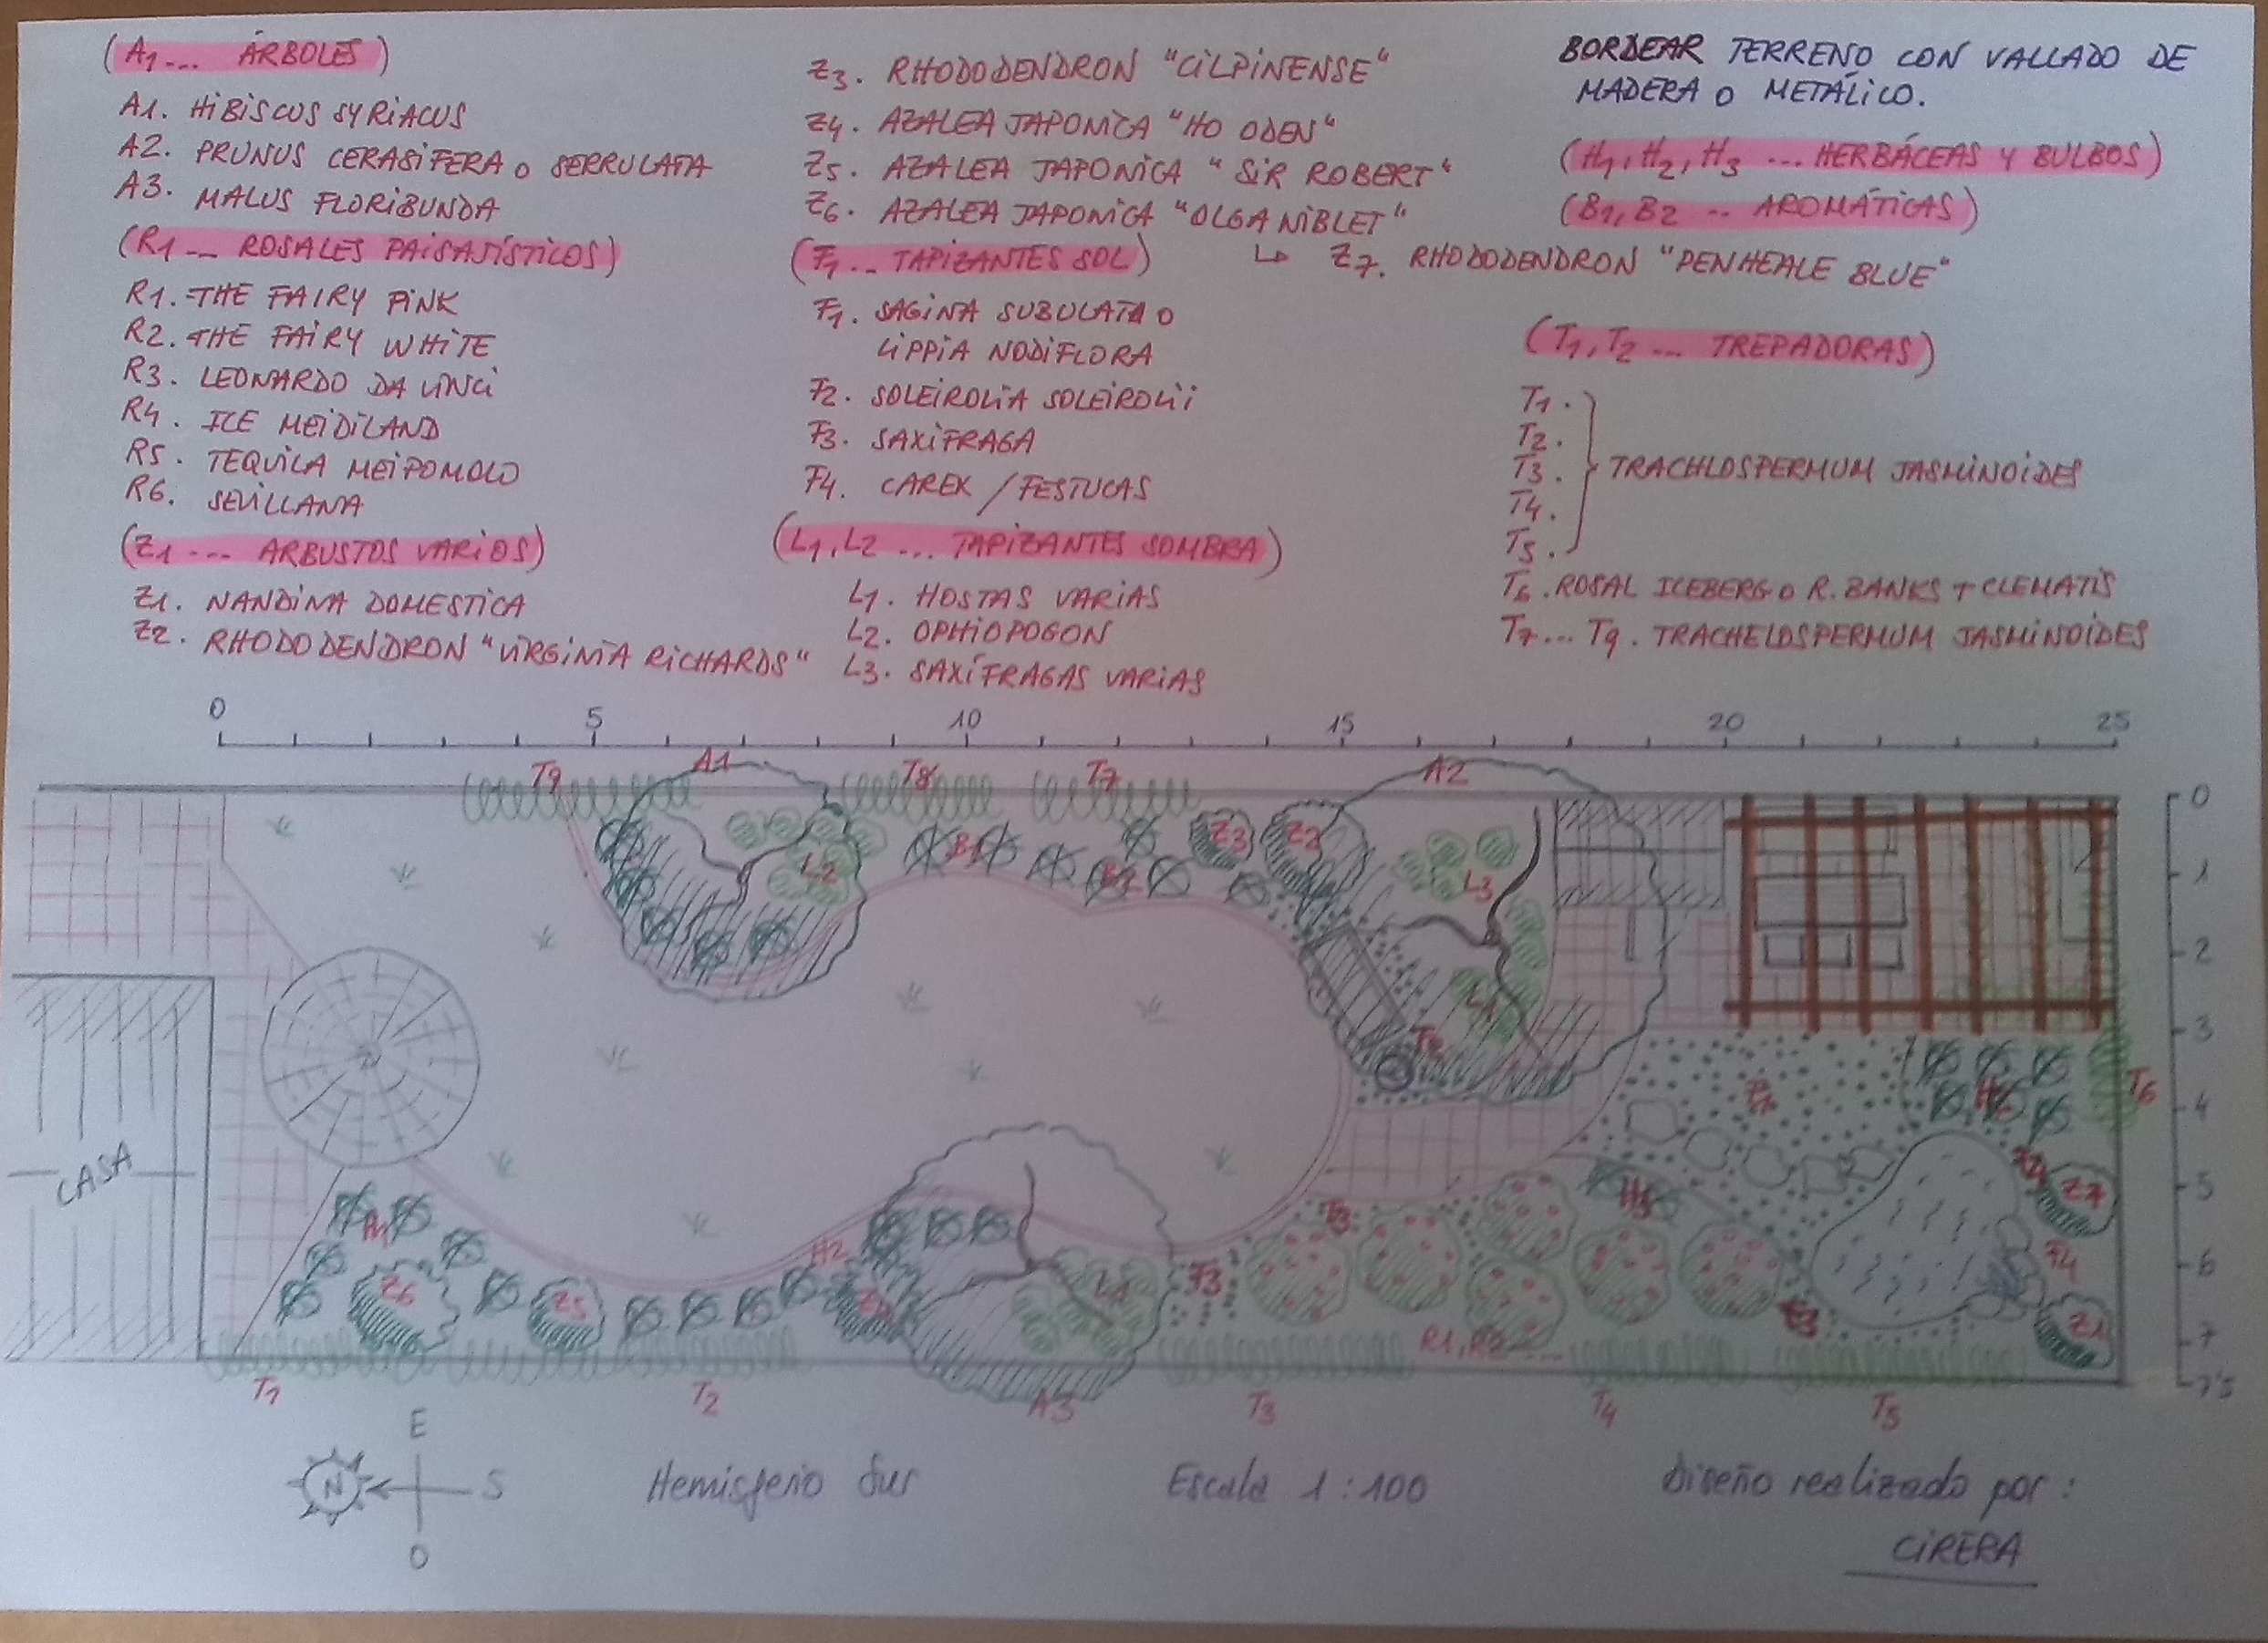 (A1... ÁRBOLES)
A1. HIBISCUS SYRIACUS
A2. PRUNUS CERASIFERA O SERRULATA
A3. MALUS FLORIBUNDA
(R1... ROSALES PAISAJÍSTICOS)
R1. THE FAIRY PINK
R2. THE FAIRY WHITE
R3. LEONARDO DA VINCI
R4. ICE MEIDILAND
R5. TEQUILA MEIPOMOLO
R6. SEVILLANA
(Z1... ARBUSTOS VARIOS)
Z1. NANDINA DOMESTICA
Z2. RHODODENDRON "VIRGINIA RICHARDS"
Z3. RHODODENDRON "CILPINENSE"
Z4. AZALEA JAPONICA "HO ODEN"
Z5. AZALEA JAPONICA "SIR ROBERT"
Z6. AZALEA JAPONICA "OLGA NIBLET"
(F1... TAPIZANTES SOL)
↳ Z7. RHODODENDRON "PENHEALE BLUE"
F1. SAGINA SUBULATA O
LIPPIA NODIFLORA
F2. SOLEIROLIA SOLEIROLII
F3. SAXIFRAGA
F4. CAREX / FESTUCAS
(L1, L2... TAPIZANTES SOMBRA)
L1. HOSTAS VARIAS
L2. OPHIOPOGON
L3. SAXÍFRAGAS VARIAS
BORDEAR TERRENO CON VALLADO DE
MADERA O METÁLICO.
(H1, H2, H3 ... HERBÁCEAS Y BULBOS)
(B1, B2 .. AROMÁTICAS)
(T1, T2 ... TREPADORAS)
T1.
T2.
T3. TRACHLOSPERMUM JASMINOIDES
T4.
T5.
T6. ROSAL ICEBERG O R. BANKS + CLEMATIS
T7... T9. TRACHELOSPERMUM JASMINOIDES
0 5 10 15 20 25
T9 A1 T8 T7 A2
0
1
2
3
4
5
6
7
7'5
L2 B1 Z3 Z2 L3
T6
CASA
H2 F3 H3 Z7
Z6 Z5 F3 F4 Z1
R1, R2....
T1 T2 A3 T3 T4 T5
E
N S
O
Hemisferio Sur
Escala 1:100
Diseño realizado por:
CIRERA